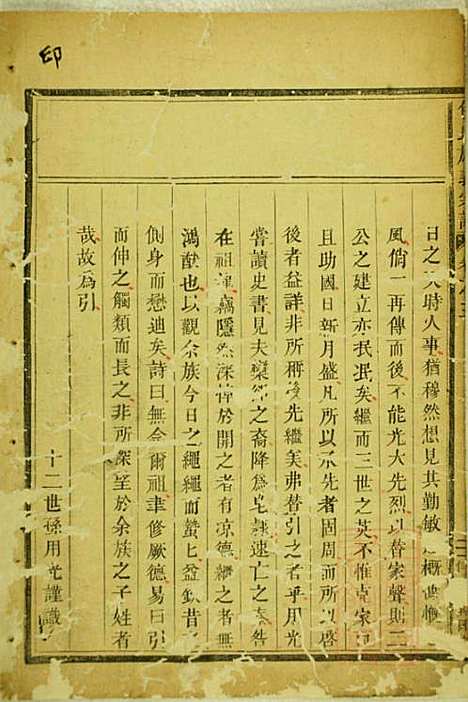 印
日之天時人事猶穆然想見其勤敏
風倘一再傳而後不能光大先烈以替家聲則二
公之建立亦泯泯矣繼而三世之英不惟克家
且助國日新月盛凡所以承先者固周而所以啓
後者益詳非所稱後先繼美弗替引之者乎用光
嘗讀史書見夫之裔降爲皂隸速亡之
在祖澤隱然深悼於開之者有凉德繼之者無
鴻猷也以觀余族今日之繩繩而蟄蟄益欽昔
側身而懋迪矣詩曰無念爾祖聿修厥德易曰引
而伸之觸類而長之非所深望於余族之子姓者
哉故爲引
十二世孫用光謹識